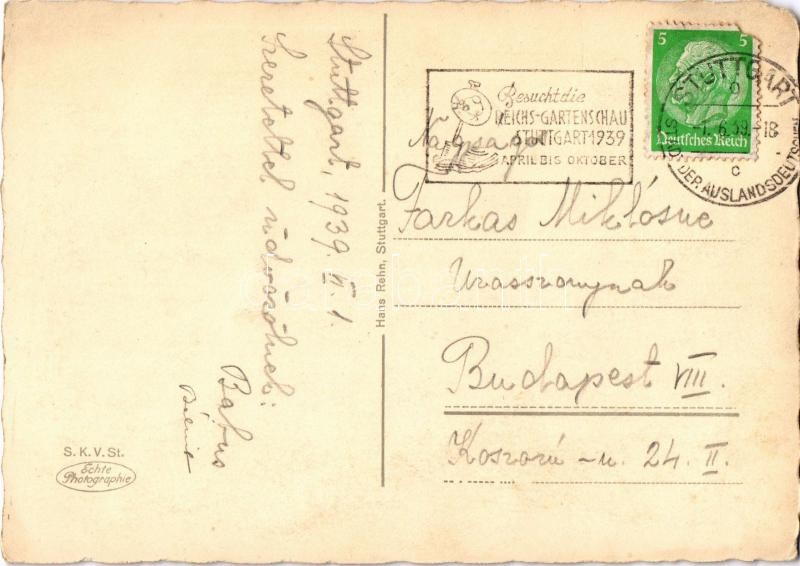 Stuttgart, 1939. VI. 1.
Szeretettel üdvözölnek:
Babus
S. K. V. St.
Echte
Photographie
Hans Rehn, Stuttgart.
Besucht die
REICHS-GARTENSCHAU
STUTTGART 1939
APRIL BIS OKTOBER
5 5
Deutsches Reich
STUTTGART 9
-1.6.39.-18
c
DER AUSLANDSDEUTSCHEN
Nagyságos
Farkas Miklósné
Urasszonynak
Budapest VIII.
Koszorú-u. 24. II.